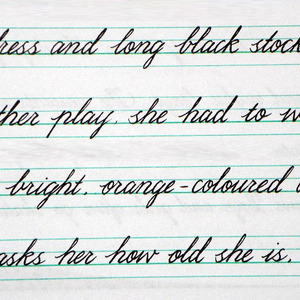 dress and long black stock
ther play. she had to w
bright. orange-coloured
asks her how old she is.